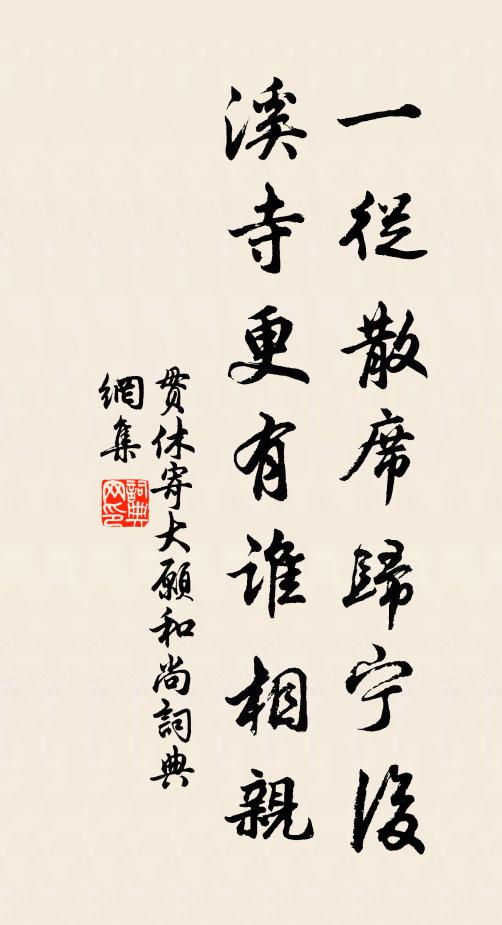 一從散席歸宁後
溪寺更有谁相親
贯休寄大願和尚詞典
網集
詞典
网印